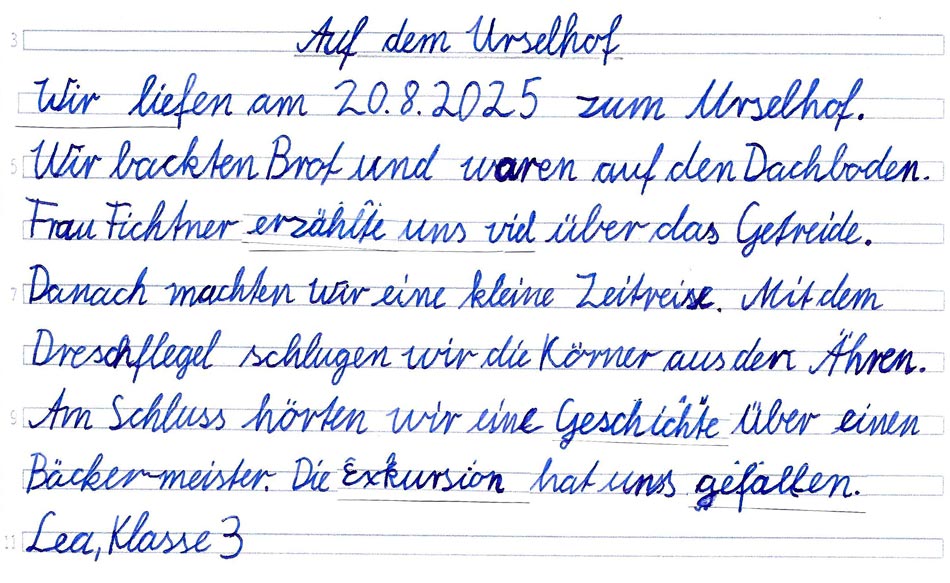 Auf dem Urselhof
Wir liefen am 20.8.2025 zum Urselhof.
Wir backten Brot und waren auf den Dachboden.
Frau Fichtner erzählte uns viel über das Getreide.
Danach machten wir eine kleine Zeitreise. Mit dem
Dreschflegel schlugen wir die Körner aus den Ähren.
Am Schluss hörten wir eine Geschichte über einen
Bäckermeister. Die Exkursion hat uns gefallen.
Lea, Klasse 3
3
5
7
9
11